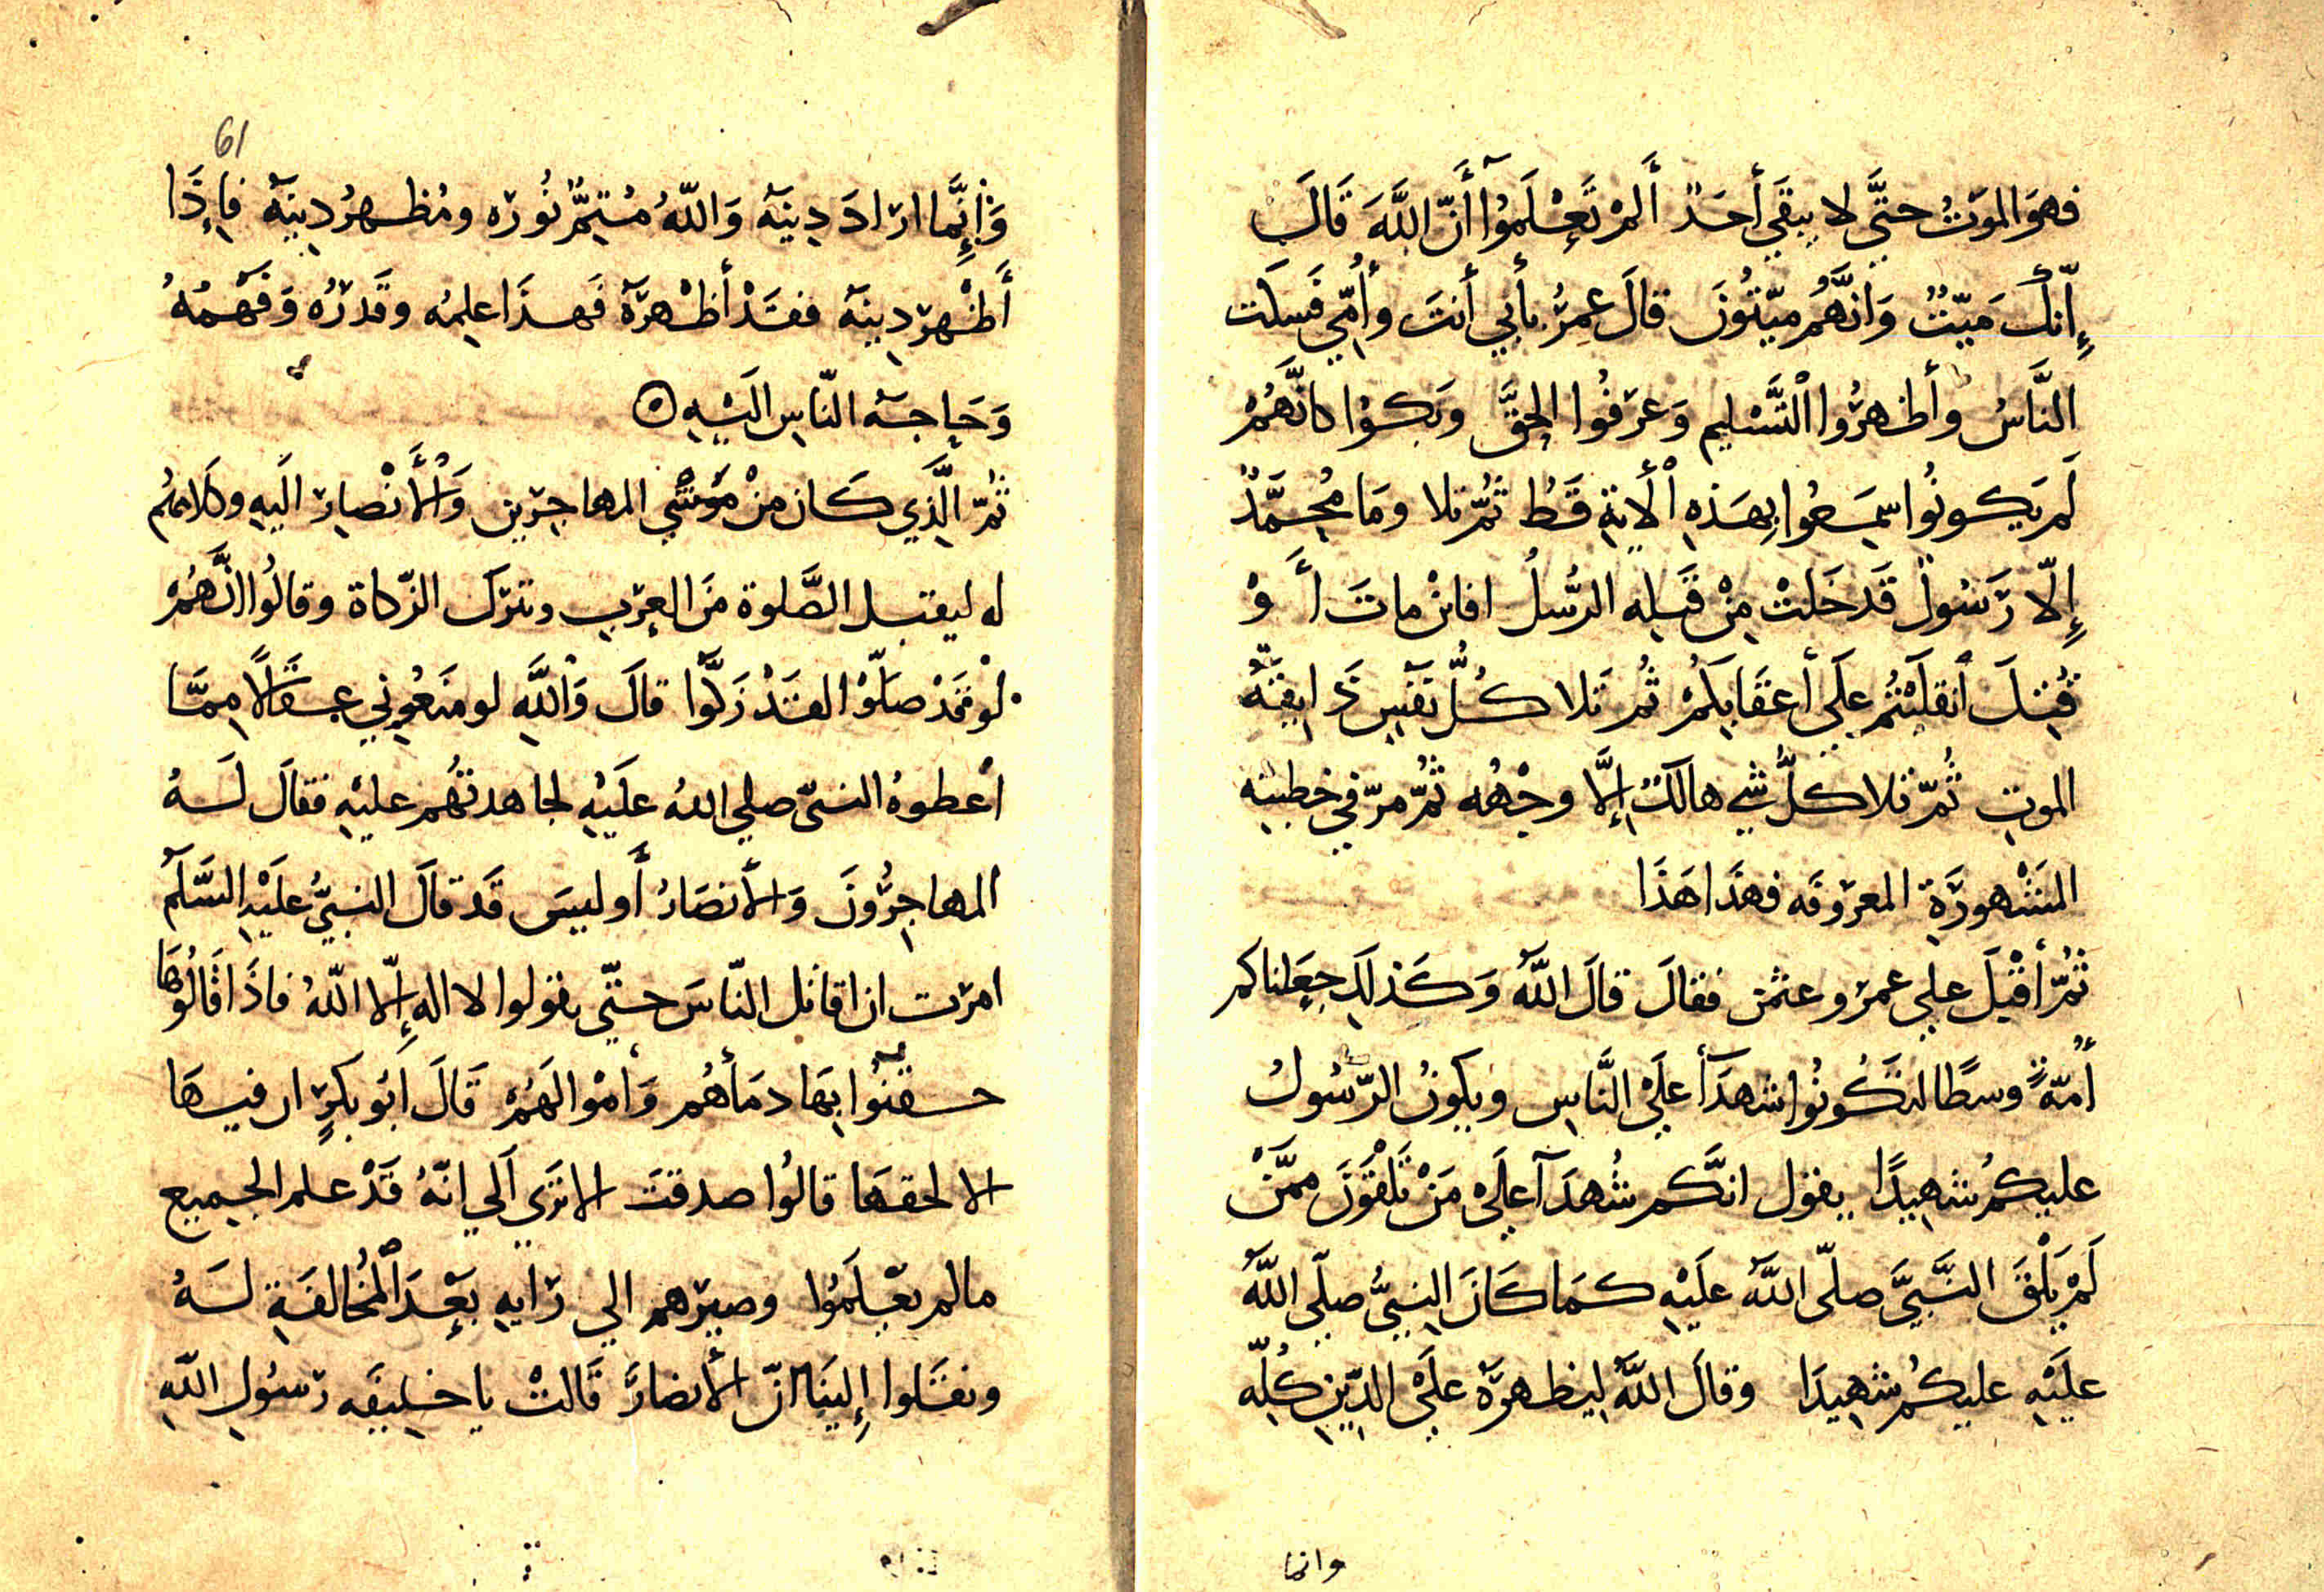 فهوَ الموتُ حتَّي لا يبقَي أحَدٌ أَلمْ تَعْلَموُا أَنّ اللَّهَ قَالَ
إِنّكَ مَيّتٌ وَانَّهُم ميّتُونَ قالَ عمرُ بأبي أنتَ وأُمّي فسكت
النَّاسُ وأظهرُوا التَّسْليم وَعرفُوا الحقَّ وبكوْا كانَّهُمْ
لَم يَكونُوا سَمعُوا بِهَذِهِ الْأية قَطُ ثُمّ تلا ومَا مُحَمَّدٌ
إِلّا رَسُولٌ قَد خَلتْ مِنْ قَبلِه الرُّسلُ افائن ماتَ أَوْ
قُتِلَ انقلَبْتُم علَي أعقَابِكمْ ثُم تلا كُلُّ نَفْسٍ ذَايقَةُ
الموتِ ثُمّ تلا كلُّ شي هالكٌ إِلَّا وجْهُه ثُمّ مرّ في خطبته
المَشْهورَةِ المعروفَه فهذَا هَذَا
ثُمّ أقْبلَ علي عمر وعثمن فقالَ قالَ اللَّهُ وَكَذلِكَ جعَلناكم
أُمّةً وسطًا لتكُونُوا شهدَأ علَي النَّاسِ ويكونُ الرّسُولُ
عليكمُ شهِيدًا يقول انَّكم شُهدَآ علَي مَنْ تَلْقَونَ ممَّنْ
لَمْ يَلْقَ النَّبيَّ صلّى اللَّهُ علَيْهِ كمَا كَانَ النبيُّ صلَّى اللَّهُ
علَيْهِ عليكُم شهِيدَا وقالَ اللَّهُ ليظهرَهُ علَي الدّينِ كُلّه
وانما
61
وَإِنَّما ارَادَ دِينَهُ وَاللّهُ مُتِمُّ نُورَه ومُظهرُ دِينَهُ فإِذَا
أَظْهر دِينَهُ فقَدْ أظْهرَهُ فَهذَا علِمُه وقَدرُه وَفَهْمُهُ
وَحَاجَةُ النّاسِ الَيْهِ ٥
ثُمّ الَّذِي كَان مِنْ مَشْي المهاجرين وَالْأَنْصارِ الَيهِ وكلامهُم
له ليقبل الصَّلوة مَن العرب وتترَكَ الزّكاة وقالُوا انَّهُمْ
لوْ قَدْ صلّوْا لقَدْ زَكّوا قالَ وَاللَّهِ لو منَعُوني عِقَالًا مِمّا
أعطوهُ النبىّ صلي اللهُ علَيْهِ لجاهدتُهُم عليْهِ فقالَ لَهُ
المهاجِرُونَ وَالأنصَارُ أَوليسَ قَد قالَ النبيُّ علَيْهِ السَّلَم
امرت ان اقاتل النّاسَ حتّي يقولوا لا اله إِلّا اللّهُ فاذَا قَالُوهَا
حقَنُوا بِهَا دمَأهُم وَأموْالهَمْ قَالَ أبُو بكرٍ ان فيهَا
الا لحقهَا قالُوا صدقتَ الا تَرَي الَي انّهُ قَدْ علم الجميع
مالم يعْلَمُوا وصيرهم الي رَايهِ بعْدَ المُخالفَةِ لَهُ
ونقَلوا إِلينَا انّ الأنصارَ قَالتْ يا خليفَه رسُولِ اللّهِ